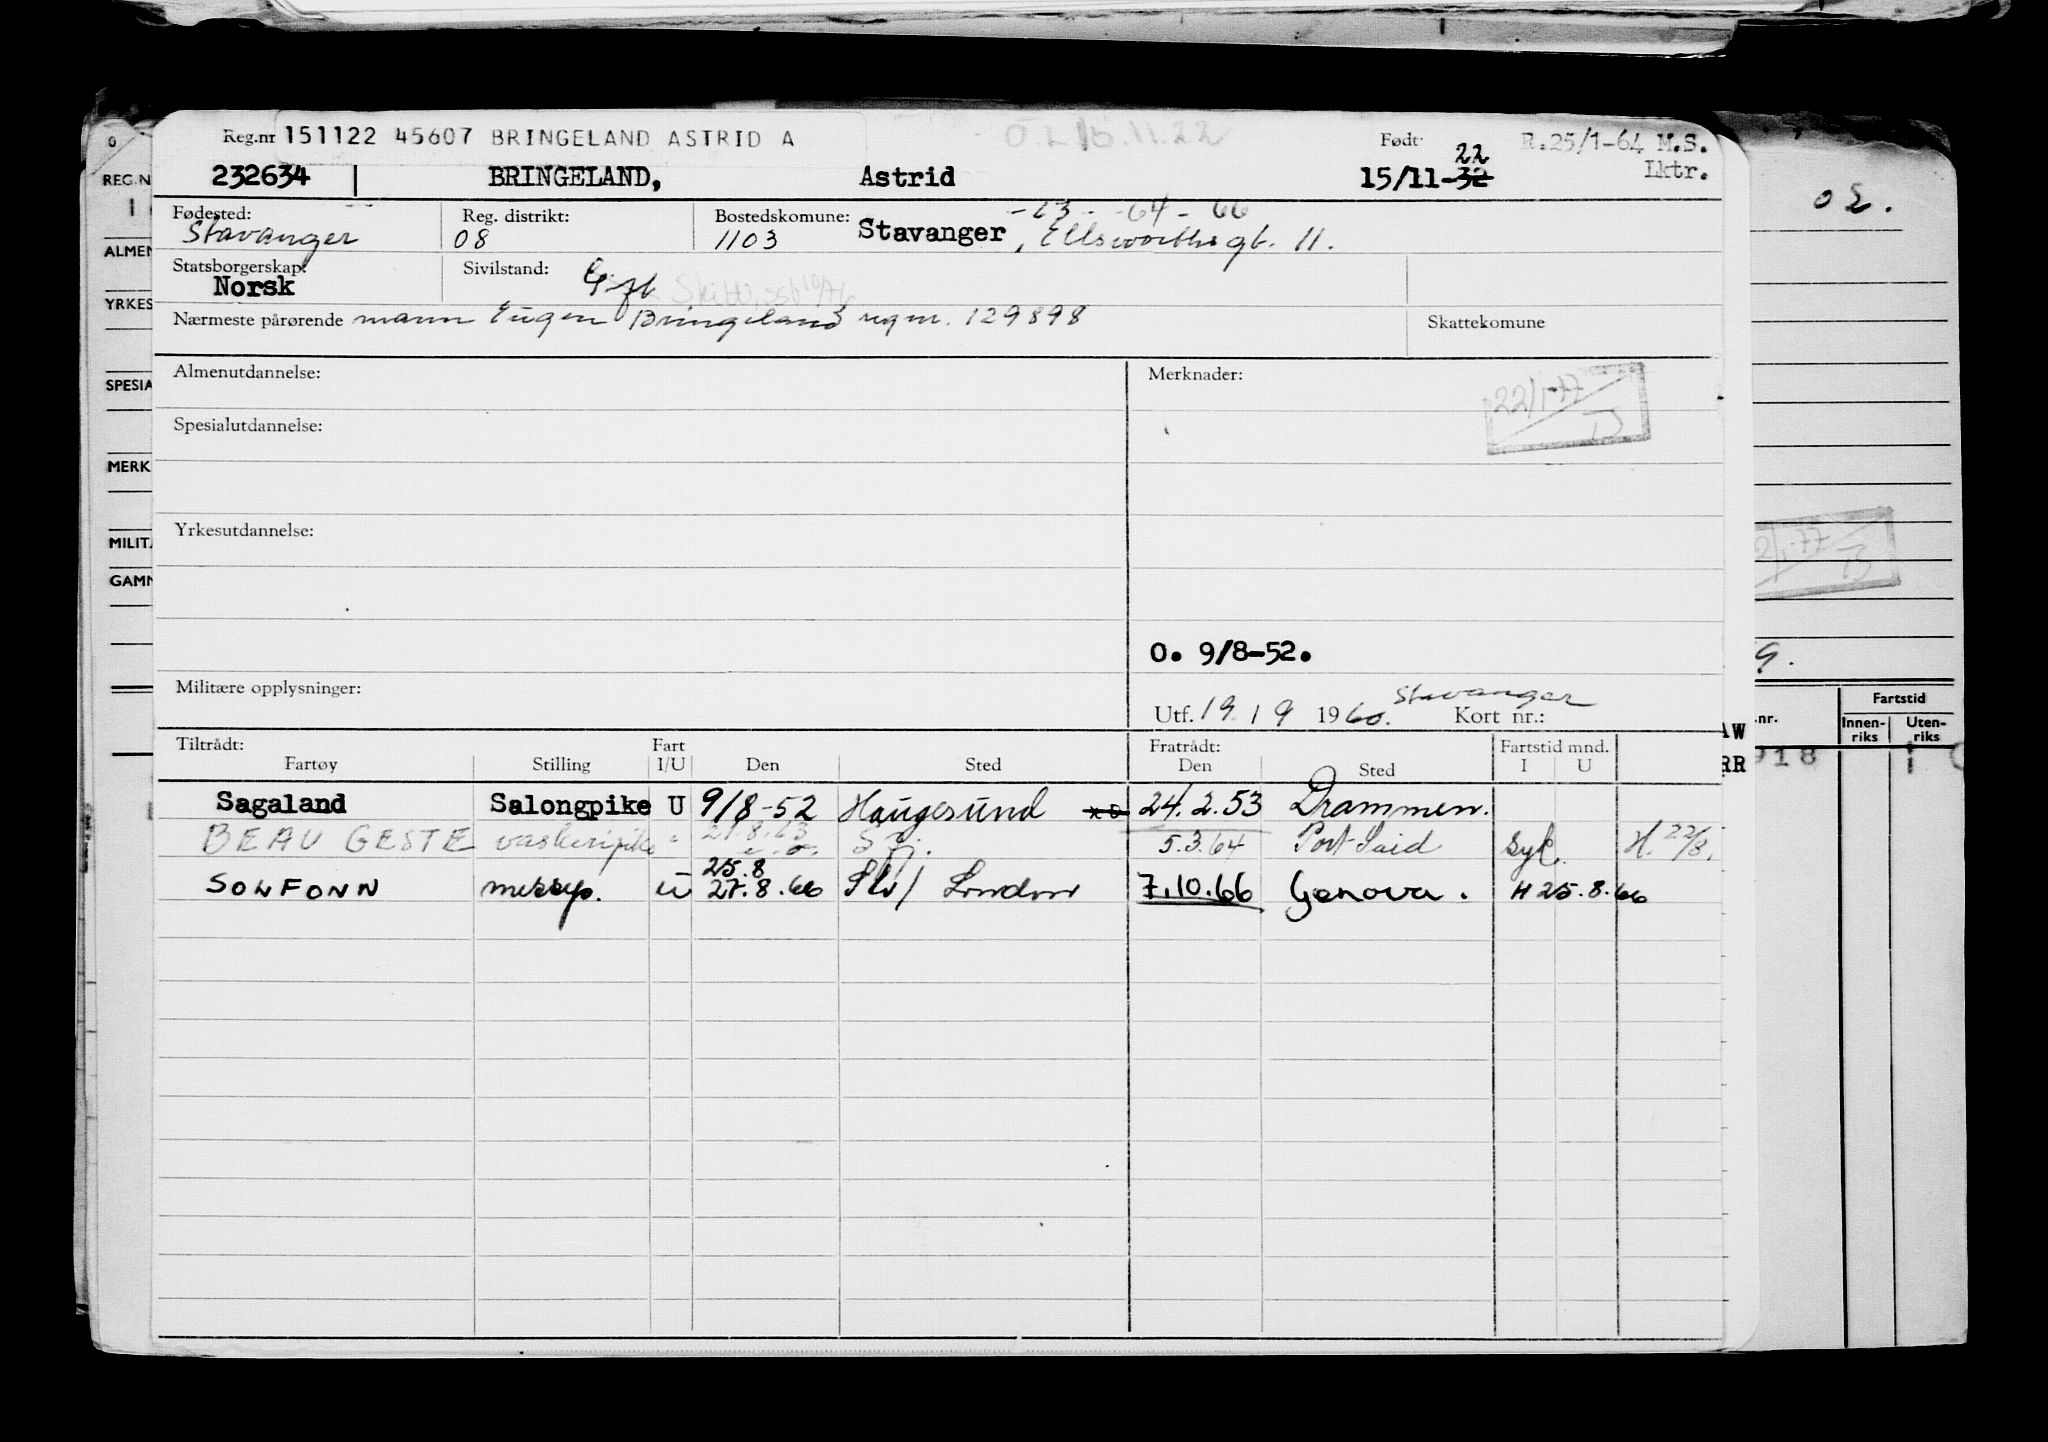 Reg.nr 151122 45607 BRINGELAND ASTRID A O.L 15.11.22 Født R.25/1-64 M.S.
Lktr.
232634 BRINGELAND, Astrid 15/11-32 22
Fødested: Reg. distrikt: Bostedskomune: -63- -64- 66
Stavanger 08 1103 Stavanger, Ellsworthsgt. 11.
Statsborgerskap: Sivilstand: Gift
Norsk
Nærmeste pårørende mann Eugen Bringeland regnr. 129898 Skattekomune
Almenutdannelse: Merknader:
22/1-77
Spesialutdannelse:
Yrkesutdannelse:
O. 9/8-52.
Militære opplysninger:
Utf. 19 / 9 1960. Stavanger Kort nr.:
Tiltrådt: Fart Fratrådt: Fartstid mnd.
Fartøy Stilling I/U Den Sted Den Sted I U
Sagaland Salongpike U 9/8-52 Haugesund 24.2.53 Drammen.
BEAU GESTE vaskeripike " 21.8.63 5.3.64 Port Said Syk H. 22/8.
25.8
SOLFONN messep. U 27.8.66 Slv/ London 7.10.66 Genova. H 25.8.66
REG.N
ALMEN
YRKES
SPESIA
MERK
MILITÆ
GAMM
OL.
2/1-77
9.
.nr. Fartstid
Innen-
riks Uten-
riks
AW
RR 918